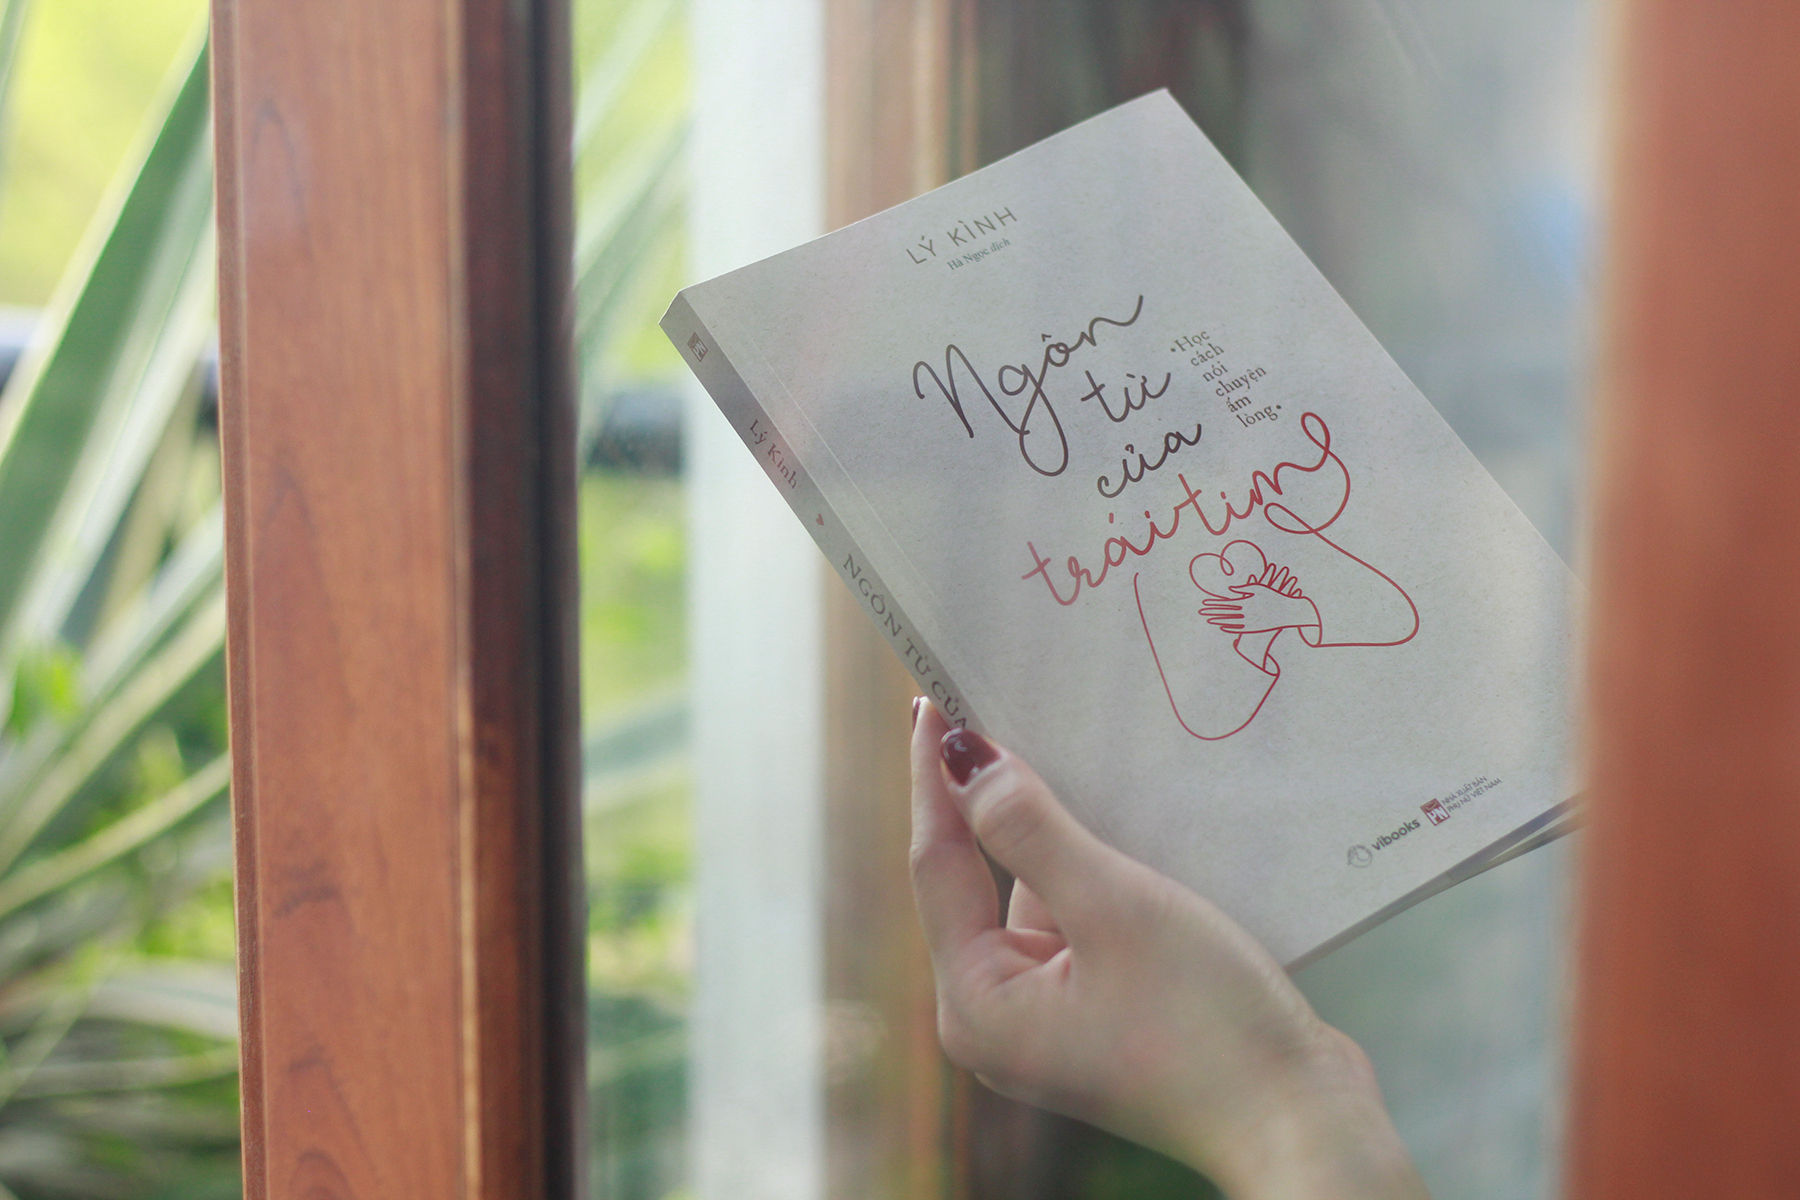 LÝ KÌNH
Hà Ngọc dịch
Ngôn
từ
của
trái tim
•Học
cách
nói
chuyện
ấm
lòng•
vibooks
PN
NHÀ XUẤT BẢN
PHỤ NỮ VIỆT NAM
Lý Kình ♥ NGÔN TỪ CỦA